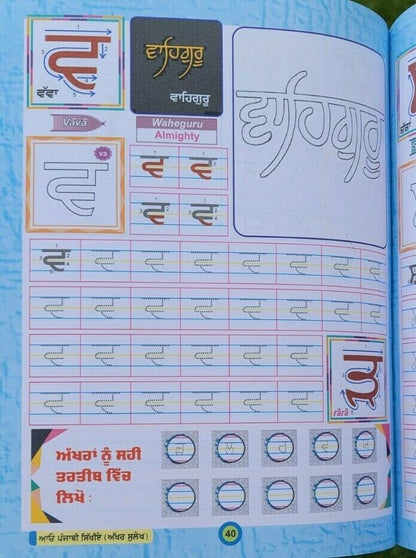 ਵ
ਵੱਵਾ
ਵਾਹਿਗੁਰੂ
ਵਾਹਿਗੁਰੂ
ਵਾਹਿਗੁਰੂ
Vāvā
Waheguru
Almighty
ਵ
va
ਵ ਵ
ਵ ਵ
ਵ ਵ ਵ ਵ ਵ ਵ ਵ ਵ
ਵ ਵ ਵ ਵ ਵ ਵ ਵ ਵ
ਵ ਵ ਵ ਵ ਵ ਵ ਵ
ਵ ਵ ਵ ਵ ਵ ਵ ਵ
rārā
ਅੱਖਰਾਂ ਨੂੰ ਸਹੀ
ਤਰਤੀਬ ਵਿੱਚ
ਲਿਖੋ :
ਆਓ ਪੰਜਾਬੀ ਸਿੱਖੀਏ (ਅੱਖਰ ਸੁਲੇਖ)
40